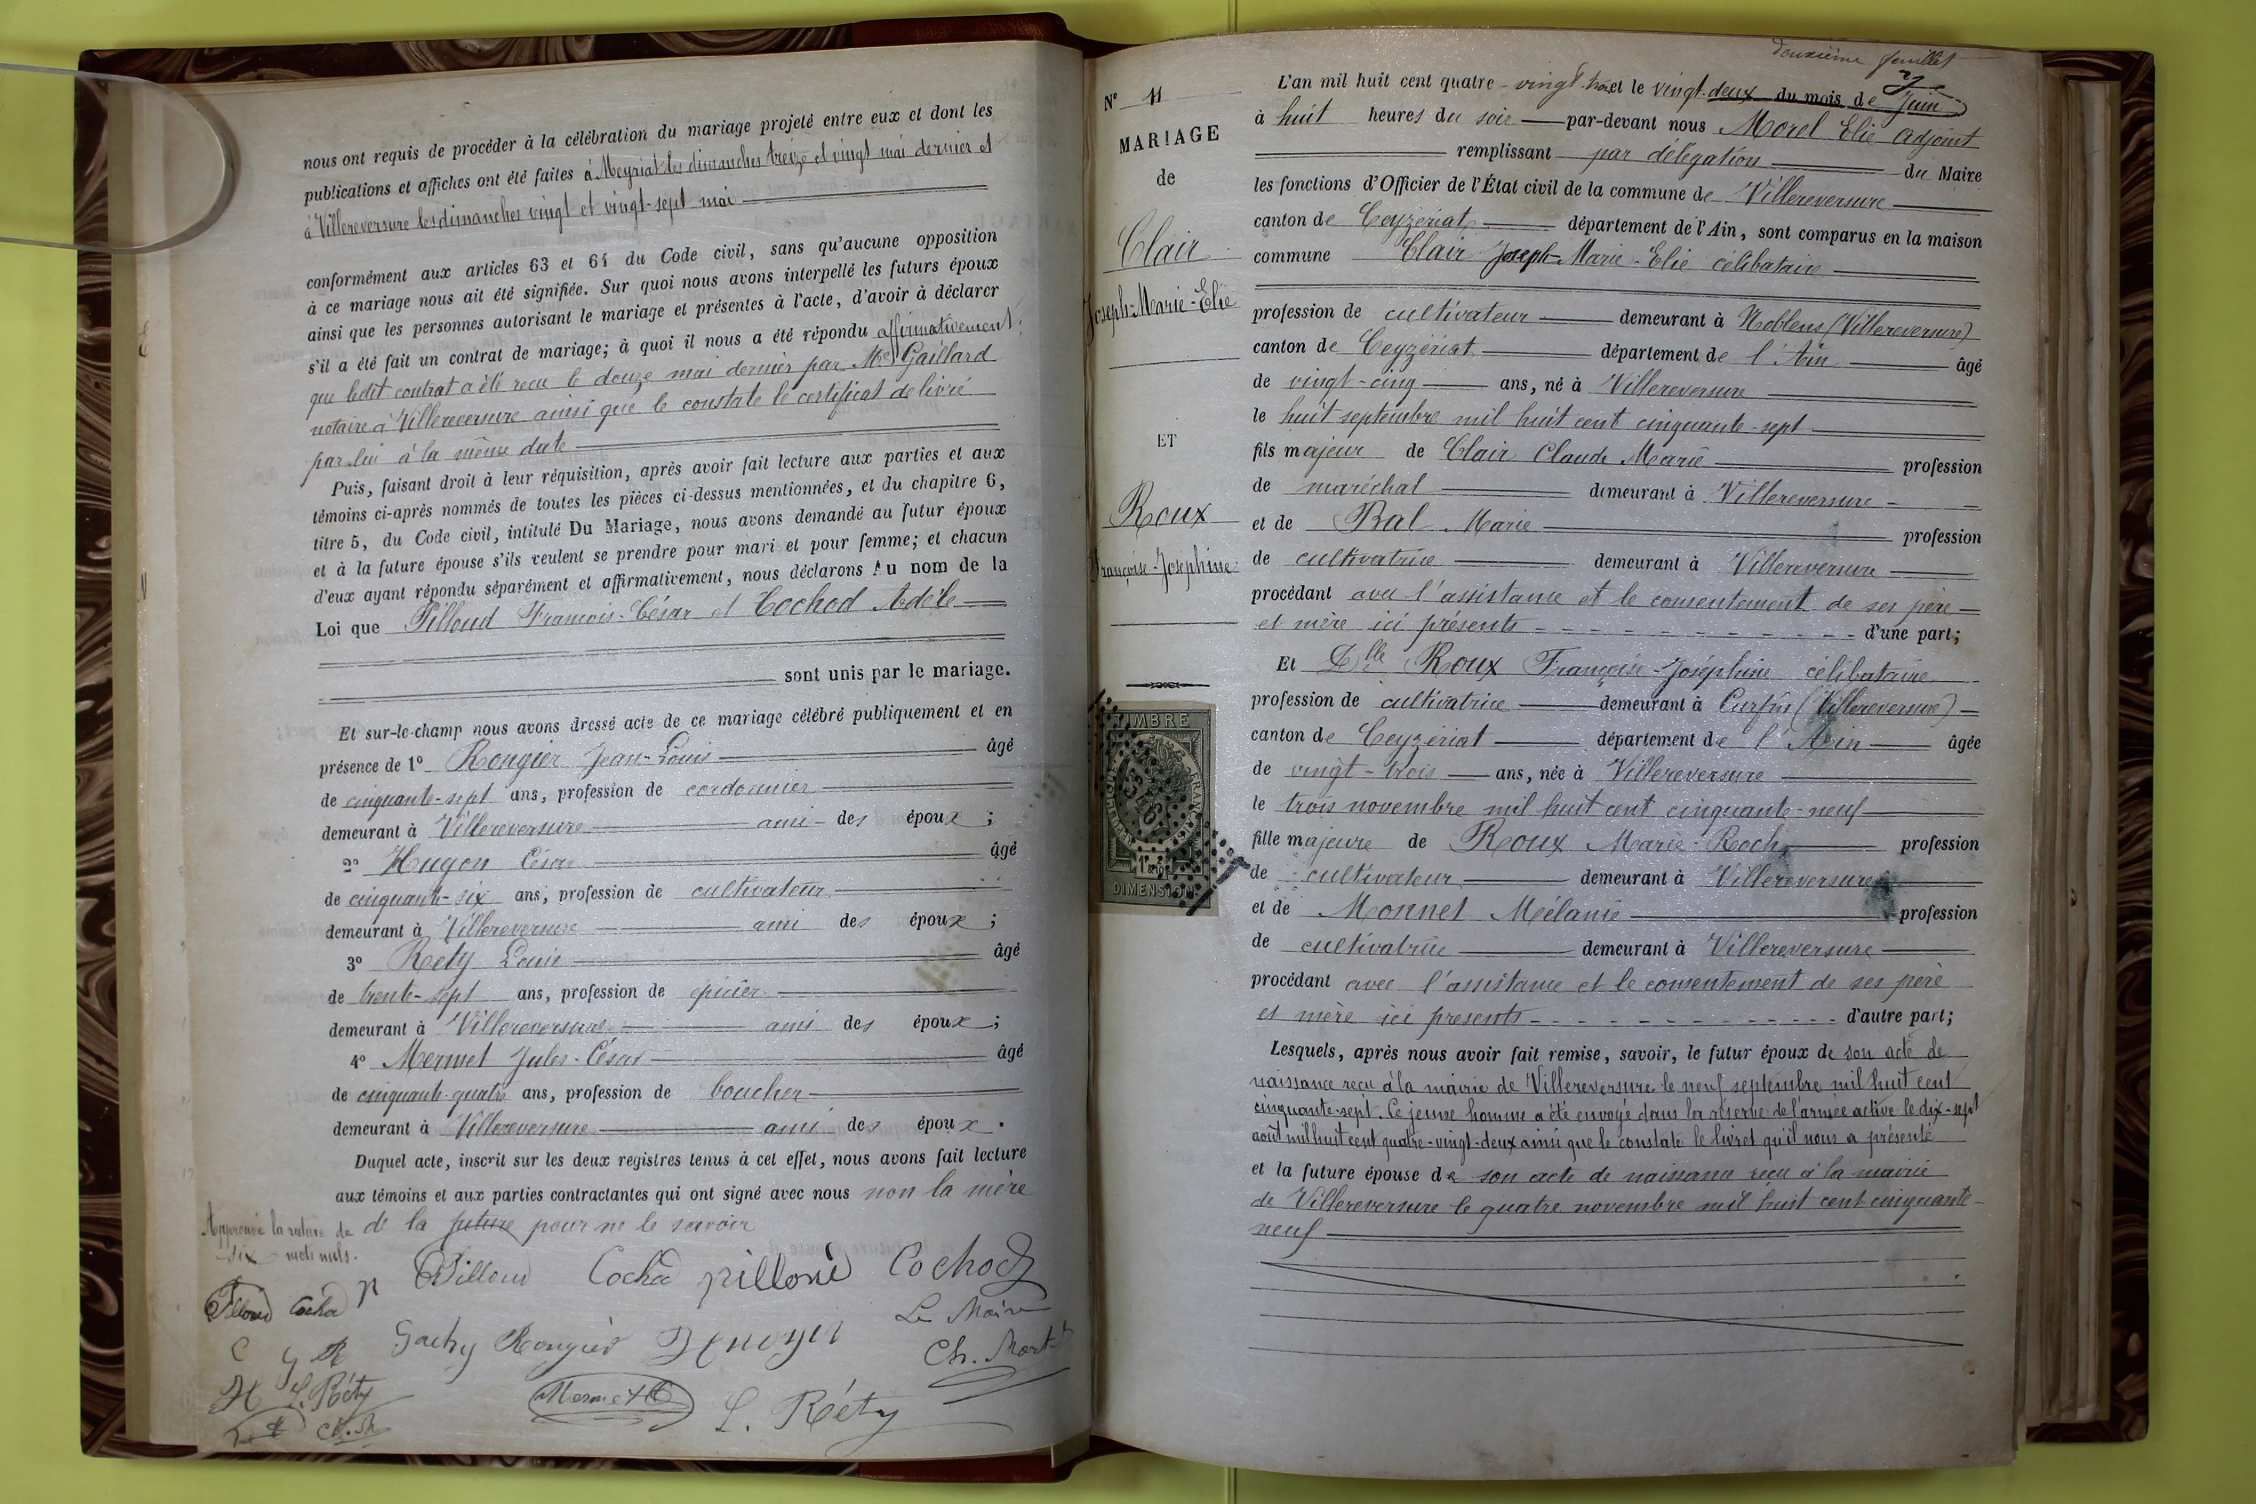 nous ont requis de procéder à la célébration du mariage projeté entre eux et dont les
publications et affiches ont été faites à Meyriat les dimanches treize et vingt mai dernier et
à Villereversure les dimanches vingt et vingt-sept mai
conformément aux articles 63 et 64 du Code civil, sans qu'aucune opposition
à ce mariage nous ait été signifiée. Sur quoi nous avons interpellé les futurs époux
ainsi que les personnes autorisant le mariage et présentes à l'acte, d'avoir à déclarer
s'il a été fait un contrat de mariage; à quoi il nous a été répondu affirmativement
que ledit contrat a été reçu le douze mai dernier par Me Gaillard
notaire à Villereversure ainsi que le constate le certificat délivré
par lui à la même date
Puis, faisant droit à leur réquisition, après avoir fait lecture aux parties et aux
témoins ci-après nommés de toutes les pièces ci-dessus mentionnées, et du chapitre 6,
titre 5, du Code civil, intitulé Du Mariage, nous avons demandé au futur époux
et à la future épouse s'ils veulent se prendre pour mari et pour femme; et chacun
d'eux ayant répondu séparément et affirmativement, nous déclarons Au nom de la
Loi que Pilloud François-César et Cochod Adèle
sont unis par le mariage.
Et sur-le-champ nous avons dressé acte de ce mariage célébré publiquement et en
présence de 1° Rongier Jean-Louis âgé
de cinquante-sept ans, profession de cordonnier
demeurant à Villereversure ami des époux ;
2° Hugon César âgé
de cinquante-six ans, profession de cultivateur
demeurant à Villereversure ami des époux ;
3° Réty Louis âgé
de trente-sept ans, profession de épicier
demeurant à Villereversure ami des époux ;
4° Mermet Jules-César âgé
de cinquante-quatre ans, profession de boucher
demeurant à Villereversure ami des époux.
Duquel acte, inscrit sur les deux registres tenus à cet effet, nous avons fait lecture
aux témoins et aux parties contractantes qui ont signé avec nous non la mère
de la future pour ne le savoir
Approuvé la rature de
six mots nuls.
Pilloud Cochod pilloud Cochod
Pilloud Cochod
Le Maire
Gachy Rongier
Ch.
H L. Réty
Mermet
L. Réty
deuxième feuillet
N° 11
MARIAGE
de
Clair
Joseph-Marie-Elie
ET
Roux
Françoise-Joséphine
TIMBRE
DIMENSION
L'an mil huit cent quatre-vingt-trois et le vingt-deux du mois de Juin
à huit heures du soir par-devant nous Morel Elie adjoint
remplissant par délégation du Maire
les fonctions d'Officier de l'État civil de la commune de Villereversure
canton de Ceyzériat département de l'Ain, sont comparus en la maison
commune Clair Joseph-Marie-Elie célibataire
profession de cultivateur demeurant à Noblens (Villereversure)
canton de Ceyzériat département de l'Ain âgé
de vingt-cinq ans, né à Villereversure
le huit septembre mil huit cent cinquante-sept
fils majeur de Clair Claude Marie profession
de maréchal demeurant à Villereversure
et de Bal Marie profession
de cultivatrice demeurant à Villereversure
procédant avec l'assistance et le consentement de ses père
et mère ici présents d'une part;
Et Dlle Roux Françoise-Joséphine célibataire
profession de cultivatrice demeurant à Curfin (Villereversure)
canton de Ceyzériat département de l'Ain âgée
de vingt-trois ans, née à Villereversure
le trois novembre mil huit cent cinquante-neuf
fille majeure de Roux Marie-Roch profession
de cultivateur demeurant à Villereversure
et de Monnet Mélanie profession
de cultivatrice demeurant à Villereversure
procédant avec l'assistance et le consentement de ses père
et mère ici présents d'autre part;
Lesquels, après nous avoir fait remise, savoir, le futur époux de son acte de
naissance reçu à la mairie de Villereversure le neuf septembre mil huit cent
cinquante-sept. Ce jeune homme a été envoyé dans la réserve de l'armée active le dix-sept
août mil huit cent quatre-vingt-deux ainsi que le constate le livret qu'il nous a présenté
et la future épouse de son acte de naissance reçu à la mairie
de Villereversure le quatre novembre mil huit cent cinquante-
neuf